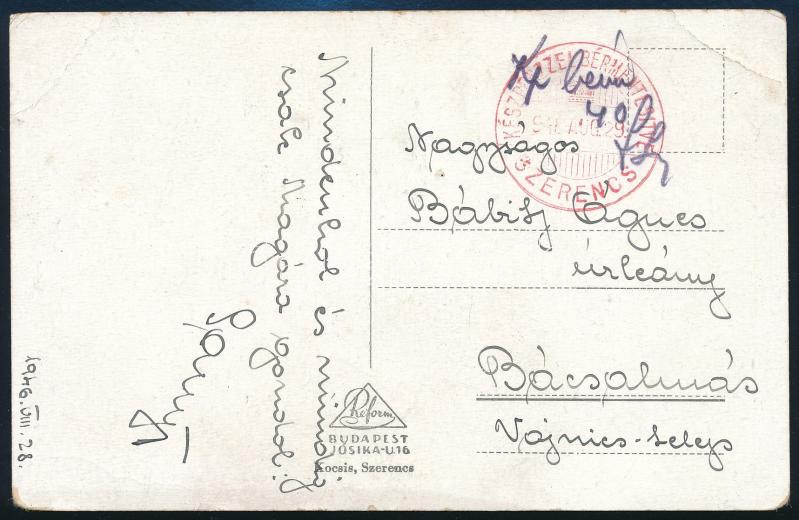 Mindenhol és mindig
csak Magára gondol:
1946. VIII. 28.
Reform
BUDAPEST
JÓSIKA-U.16
Kocsis, Szerencs
KÉSZPÉNZZEL BÉRMENTESÍTVE
AUG. 29
SZERENCS
Kp bérm
40 fill
Nagyságos
Bábisj Ágnes
úrleány
Bácsalmás
Vojnics-telep